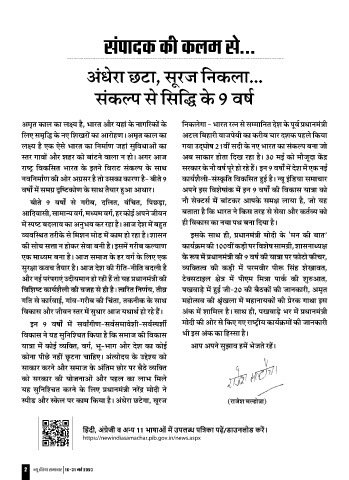 संपादक की कलम से...
अंधेरा छटा, सूरज निकला...
संकल्प से सिद्धि के 9 वर्ष
अमृत काल का लक्ष्य है, भारत और यहां के नागरिकों के
लिए समृद्धि के नए शिखरों का आरोहण। अमृत काल का
लक्ष्य है एक ऐसे भारत का निर्माण जहां सुविधाओं का
स्तर गावों और शहर को बांटने वाला न हो। अगर आज
राष्ट्र विकसित भारत के इतने विराट संकल्प के साथ
नवनिर्माण की ओर अग्रसर है तो उसका कारण है- बीते 9
वर्षों में समग्र दृष्टिकोण के साथ तैयार हुआ आधार।
बीते 9 वर्षों से गरीब, दलित, वंचित, पिछड़ा,
आदिवासी, सामान्य वर्ग, मध्यम वर्ग, हर कोई अपने जीवन
में स्पष्ट बदलाव का अनुभव कर रहा है। आज देश में बहुत
व्यवस्थित तरीके से मिशन मोड में काम हो रहा है। शासन
की सोच सत्ता न होकर सेवा बनी है। इसमें गरीब कल्याण
एक माध्यम बना है। आज समाज के हर वर्ग के लिए एक
सुरक्षा कवच तैयार है। आज देश की रीति-नीति बदली है
और नई परंपराएं उदीयमान हो रही हैं तो यह प्रधानमंत्री की
विशिष्ट कार्यशैली की वजह से ही है। त्वरित निर्णय, तीव्र
गति से कार्रवाई, गांव-गरीब की चिंता, तकनीक के साथ
विकास और जीवन स्तर में सुधार आज यथार्थ हो रहे हैं।
इन 9 वर्षों में सर्वांगीण-सर्वसमावेशी-सर्वस्पर्शी
विकास ने यह सुनिश्चित किया है कि समाज की विकास
यात्रा में कोई व्यक्ति, वर्ग, भू-भाग और देश का कोई
कोना पीछे नहीं छूटना चाहिए। अंत्योदय के उद्देश्य को
साकार करने और समाज के अंतिम छोर पर बैठे व्यक्ति
को सरकार की योजनाओं और पहल का लाभ मिले
यह सुनिश्चित करने के लिए प्रधानमंत्री नरेंद्र मोदी ने
स्पीड और स्केल पर काम किया है। अंधेरा छटेगा, सूरज
निकलेगा - भारत रत्न से सम्मानित देश के पूर्व प्रधानमंत्री
अटल बिहारी वाजपेयी का करीब चार दशक पहले किया
गया उद्घोष 21वीं सदी के नए भारत का संकल्प बना जो
अब साकार होता दिख रहा है। 30 मई को मौजूदा केंद्र
सरकार के नौ वर्ष पूरे हो रहे हैं। इन 9 वर्षों में देश में एक नई
कार्यशैली-संस्कृति विकसित हुई है। न्यू इंडिया समाचार
अपने इस विशेषांक में इन 9 वर्षों की विकास यात्रा को
नौ सेक्टर्स में बांटकर आपके समक्ष लाया है, जो यह
बताता है कि भारत ने किस तरह से सेवा और कर्तव्य को
ही विकास का नया पथ बना दिया है।
इसके साथ ही, प्रधानमंत्री मोदी के 'मन की बात'
कार्यक्रम की 100वीं कड़ी पर विशेष सामग्री, शासनाध्यक्ष
के रूप में प्रधानमंत्री की 9 वर्ष की यात्रा पर फोटो फीचर,
व्यक्तित्व की कड़ी में परमवीर पीरू सिंह शेखावत,
टेक्सटाइल क्षेत्र में पीएम मित्रा पार्क की शुरुआत,
पखवाड़े में हुई जी-20 की बैठकों की जानकारी, अमृत
महोत्सव की श्रृंखला में महानायकों की प्रेरक गाथा इस
अंक में शामिल है। साथ ही, पखवाड़े भर में प्रधानमंत्री
मोदी की ओर से किए गए राष्ट्रीय कार्यक्रमों की जानकारी
भी इस अंक का हिस्सा है।
आप अपने सुझाव हमें भेजते रहें।
राजेश मल्होत्रा
(राजेश मल्होत्रा)
हिंदी, अंग्रेजी व अन्य 11 भाषाओं में उपलब्ध पत्रिका पढ़ें/डाउनलोड करें।
https://newindiasamachar.pib.gov.in/news.aspx
2 न्यू इंडिया समाचार | 16-31 मई 2023